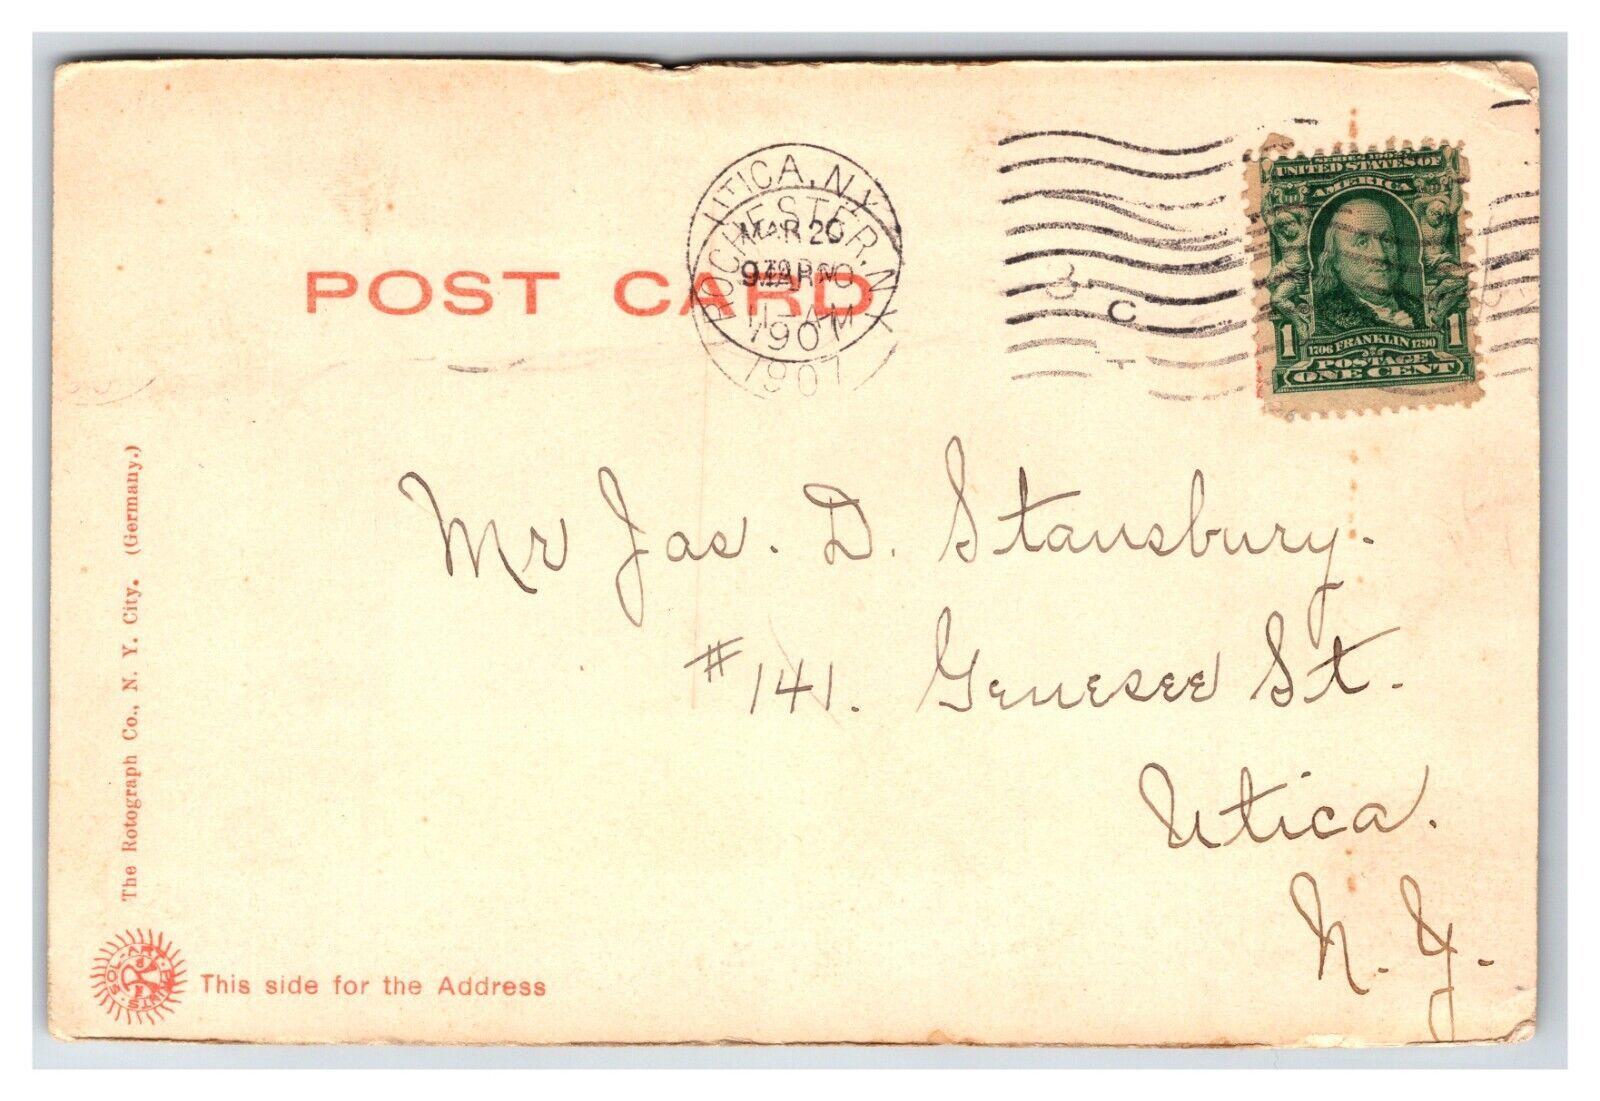 UTICA, N.Y.
ROCHESTER, N.Y.
MAR 20
1907
1907
SERIES 1902
UNITED STATES OF
AMERICA
1 1
1706 FRANKLIN 1790
POSTAGE
ONE CENT
C
POST CARD
Mr Jas. D. Stansbury.
#141. Genesee St.
Utica.
N. Y.
The Rotograph Co., N. Y. City. (Germany.)
SOL-ART PRINTS
This side for the Address